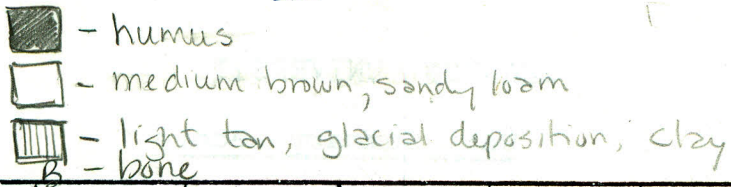 - humus
- medium brown, sandy loam
- light tan, glacial deposition, clay
B - bone